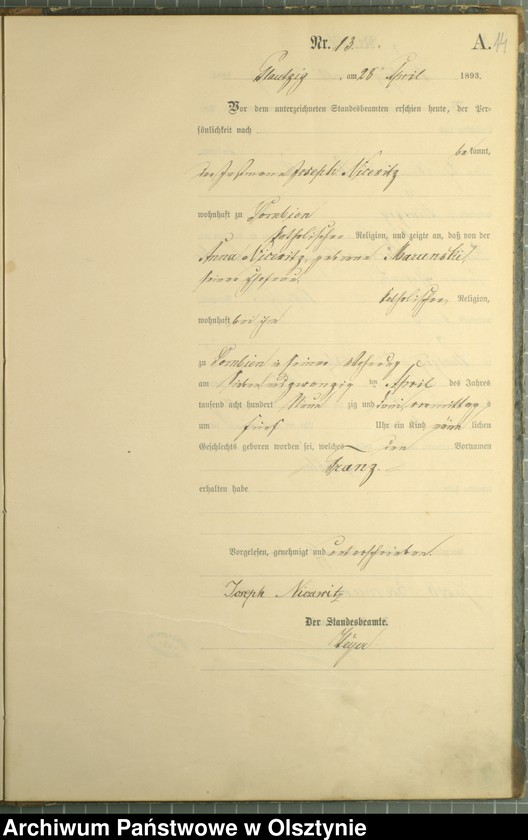 Nr. 13. A. 14
am 28 April 1893.
Vor dem unterzeichneten Standesbeamten erschien heute, der Per-
sönlichkeit nach
bekannt,
der Joseph Nicewitz
wohnhaft zu Dombien
katholischer Religion, und zeigte an, daß von der
Anna Nicewitz, geborne
seiner Ehefrau
katholischer Religion,
wohnhaft bei ihm
zu Dombien in seiner Wohnung
am sieben und zwanzig ten April des Jahres
tausend acht hundert Neun zig und drei, vormittags
um fünf Uhr ein Kind männ lichen
Geschlechts geboren worden sei, welches den Vornamen
Franz.
erhalten habe
Vorgelesen, genehmigt und unterschrieben.
Joseph Nicewitz
Der Standesbeamte.
Archiwum Państwowe w Olsztynie